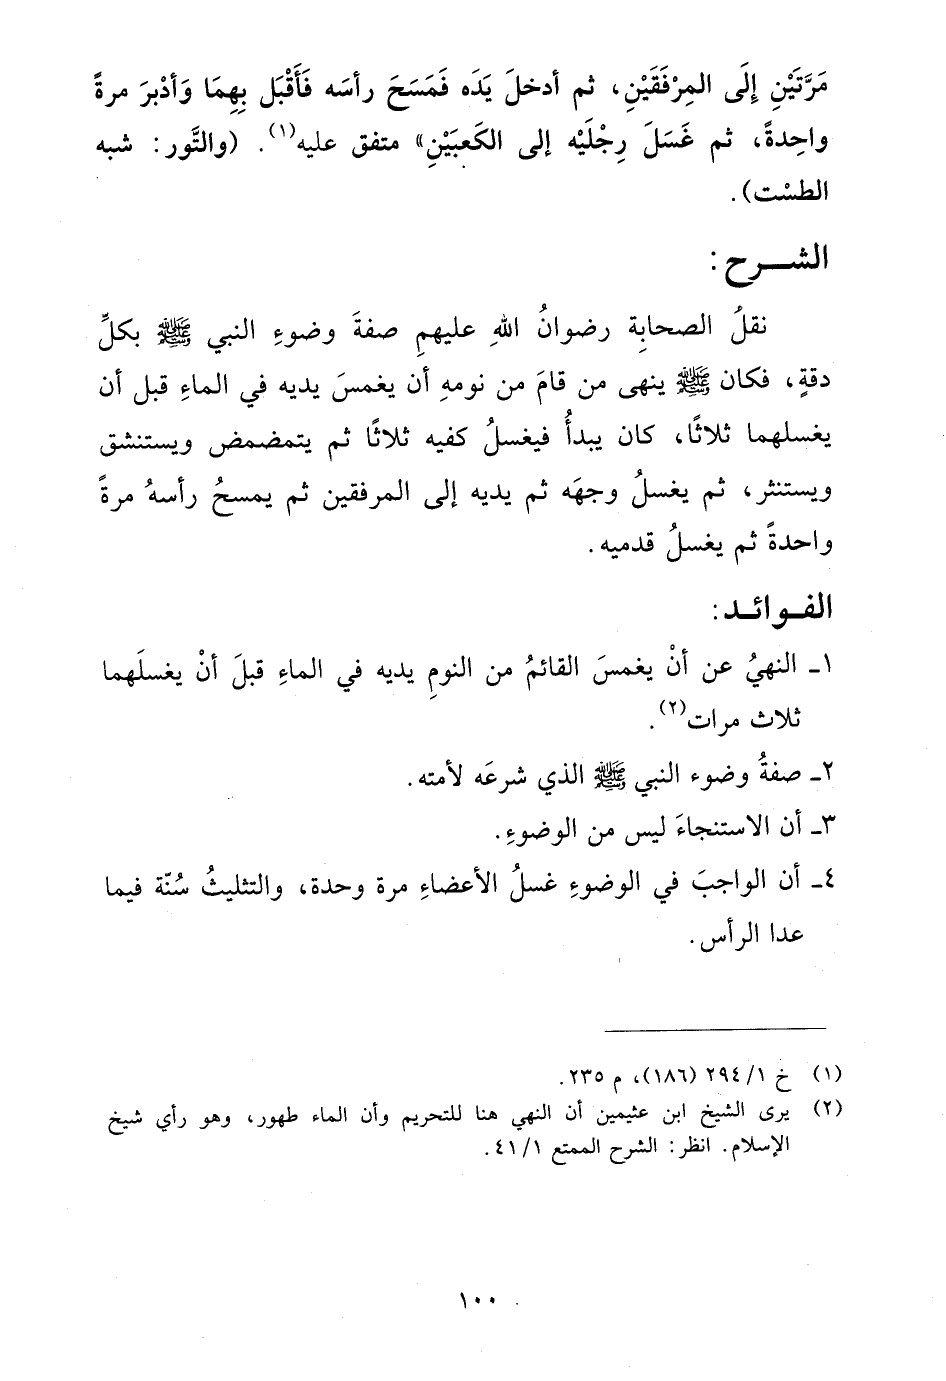 مَرَّتَيْنِ إِلَى المِرْفَقَيْنِ، ثم أدخلَ يَدَه فَمَسَحَ رأسَه فَأَقْبَل بِهِمَا وَأدْبرَ مرةً
واحِدةً، ثم غَسَلَ رِجْلَيْه إلى الكَعبَيْنِ» متفق عليه(١). (والتَّور: شبه
الطسْت).
الشـــرح:
نقلُ الصحابِة رضوانُ اللهِ عليهمِ صفةَ وضوءِ النبي ﷺ بكلِّ
دقةٍ، فكان ﷺ ينهى من قامَ من نومهِ أن يغمسَ يديه في الماءِ قبل أن
يغسلهما ثلاثًا، كان يبدأُ فيغسلُ كفيه ثلاثًا ثم يتمضمض ويستنشق
ويستنثر، ثم يغسلُ وجهَه ثم يديه إلى المرفقين ثم يمسحُ رأسهُ مرةً
واحدةً ثم يغسلُ قدميه.
الفـوائـد:
١ـ النهيُ عن أنْ يغمسَ القائمُ من النومِ يديه في الماءِ قبلَ أنْ يغسلَهما
ثلاث مرات(٢).
٢ـ صفةُ وضوء النبي ﷺ الذي شرعَه لأمته.
٣ـ أن الاستنجاءَ ليس من الوضوءِ.
٤ـ أن الواجبَ في الوضوءِ غسلُ الأعضاءِ مرة وحدة، والتثليثُ سُنّة فيما
عدا الرأس.
(١) خ ٢٩٤/١ (١٨٦)، م ٢٣٥.
(٢) يرى الشيخ ابن عثيمين أن النهي هنا للتحريم وأن الماء طهور، وهو رأي شيخ
الإسلام. انظر: الشرح الممتع ٤١/١.
١٠٠